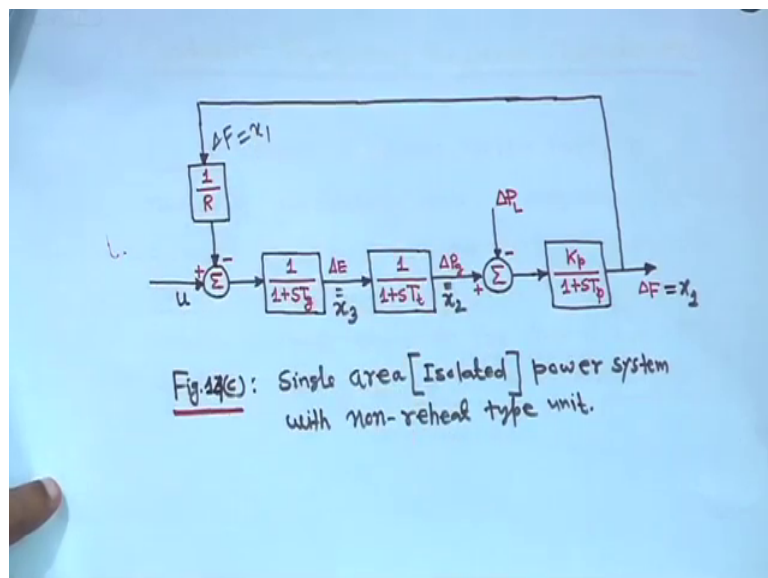 ΔF=x1
1
R
ΔPL
+
-
-
+
u
Σ
1
1+STg
ΔE
=
x3
1
1+STt
ΔPg
=
x2
Σ
Kp
1+STp
ΔF=x1
Single area [Isolated] power system
with non-reheat type unit.